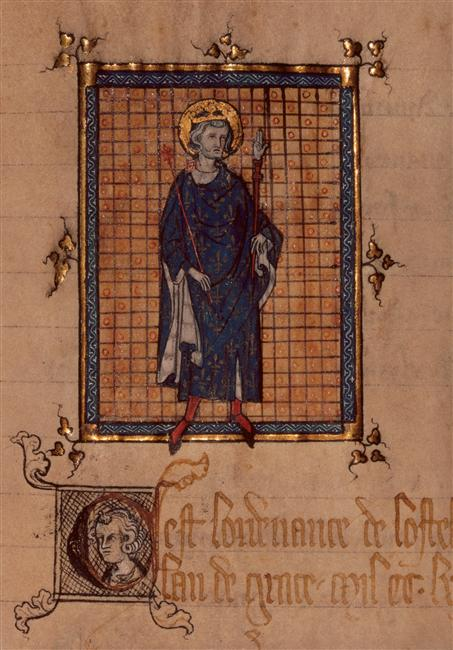 Cest lordenance de lostel
lan de grace. mil cc.